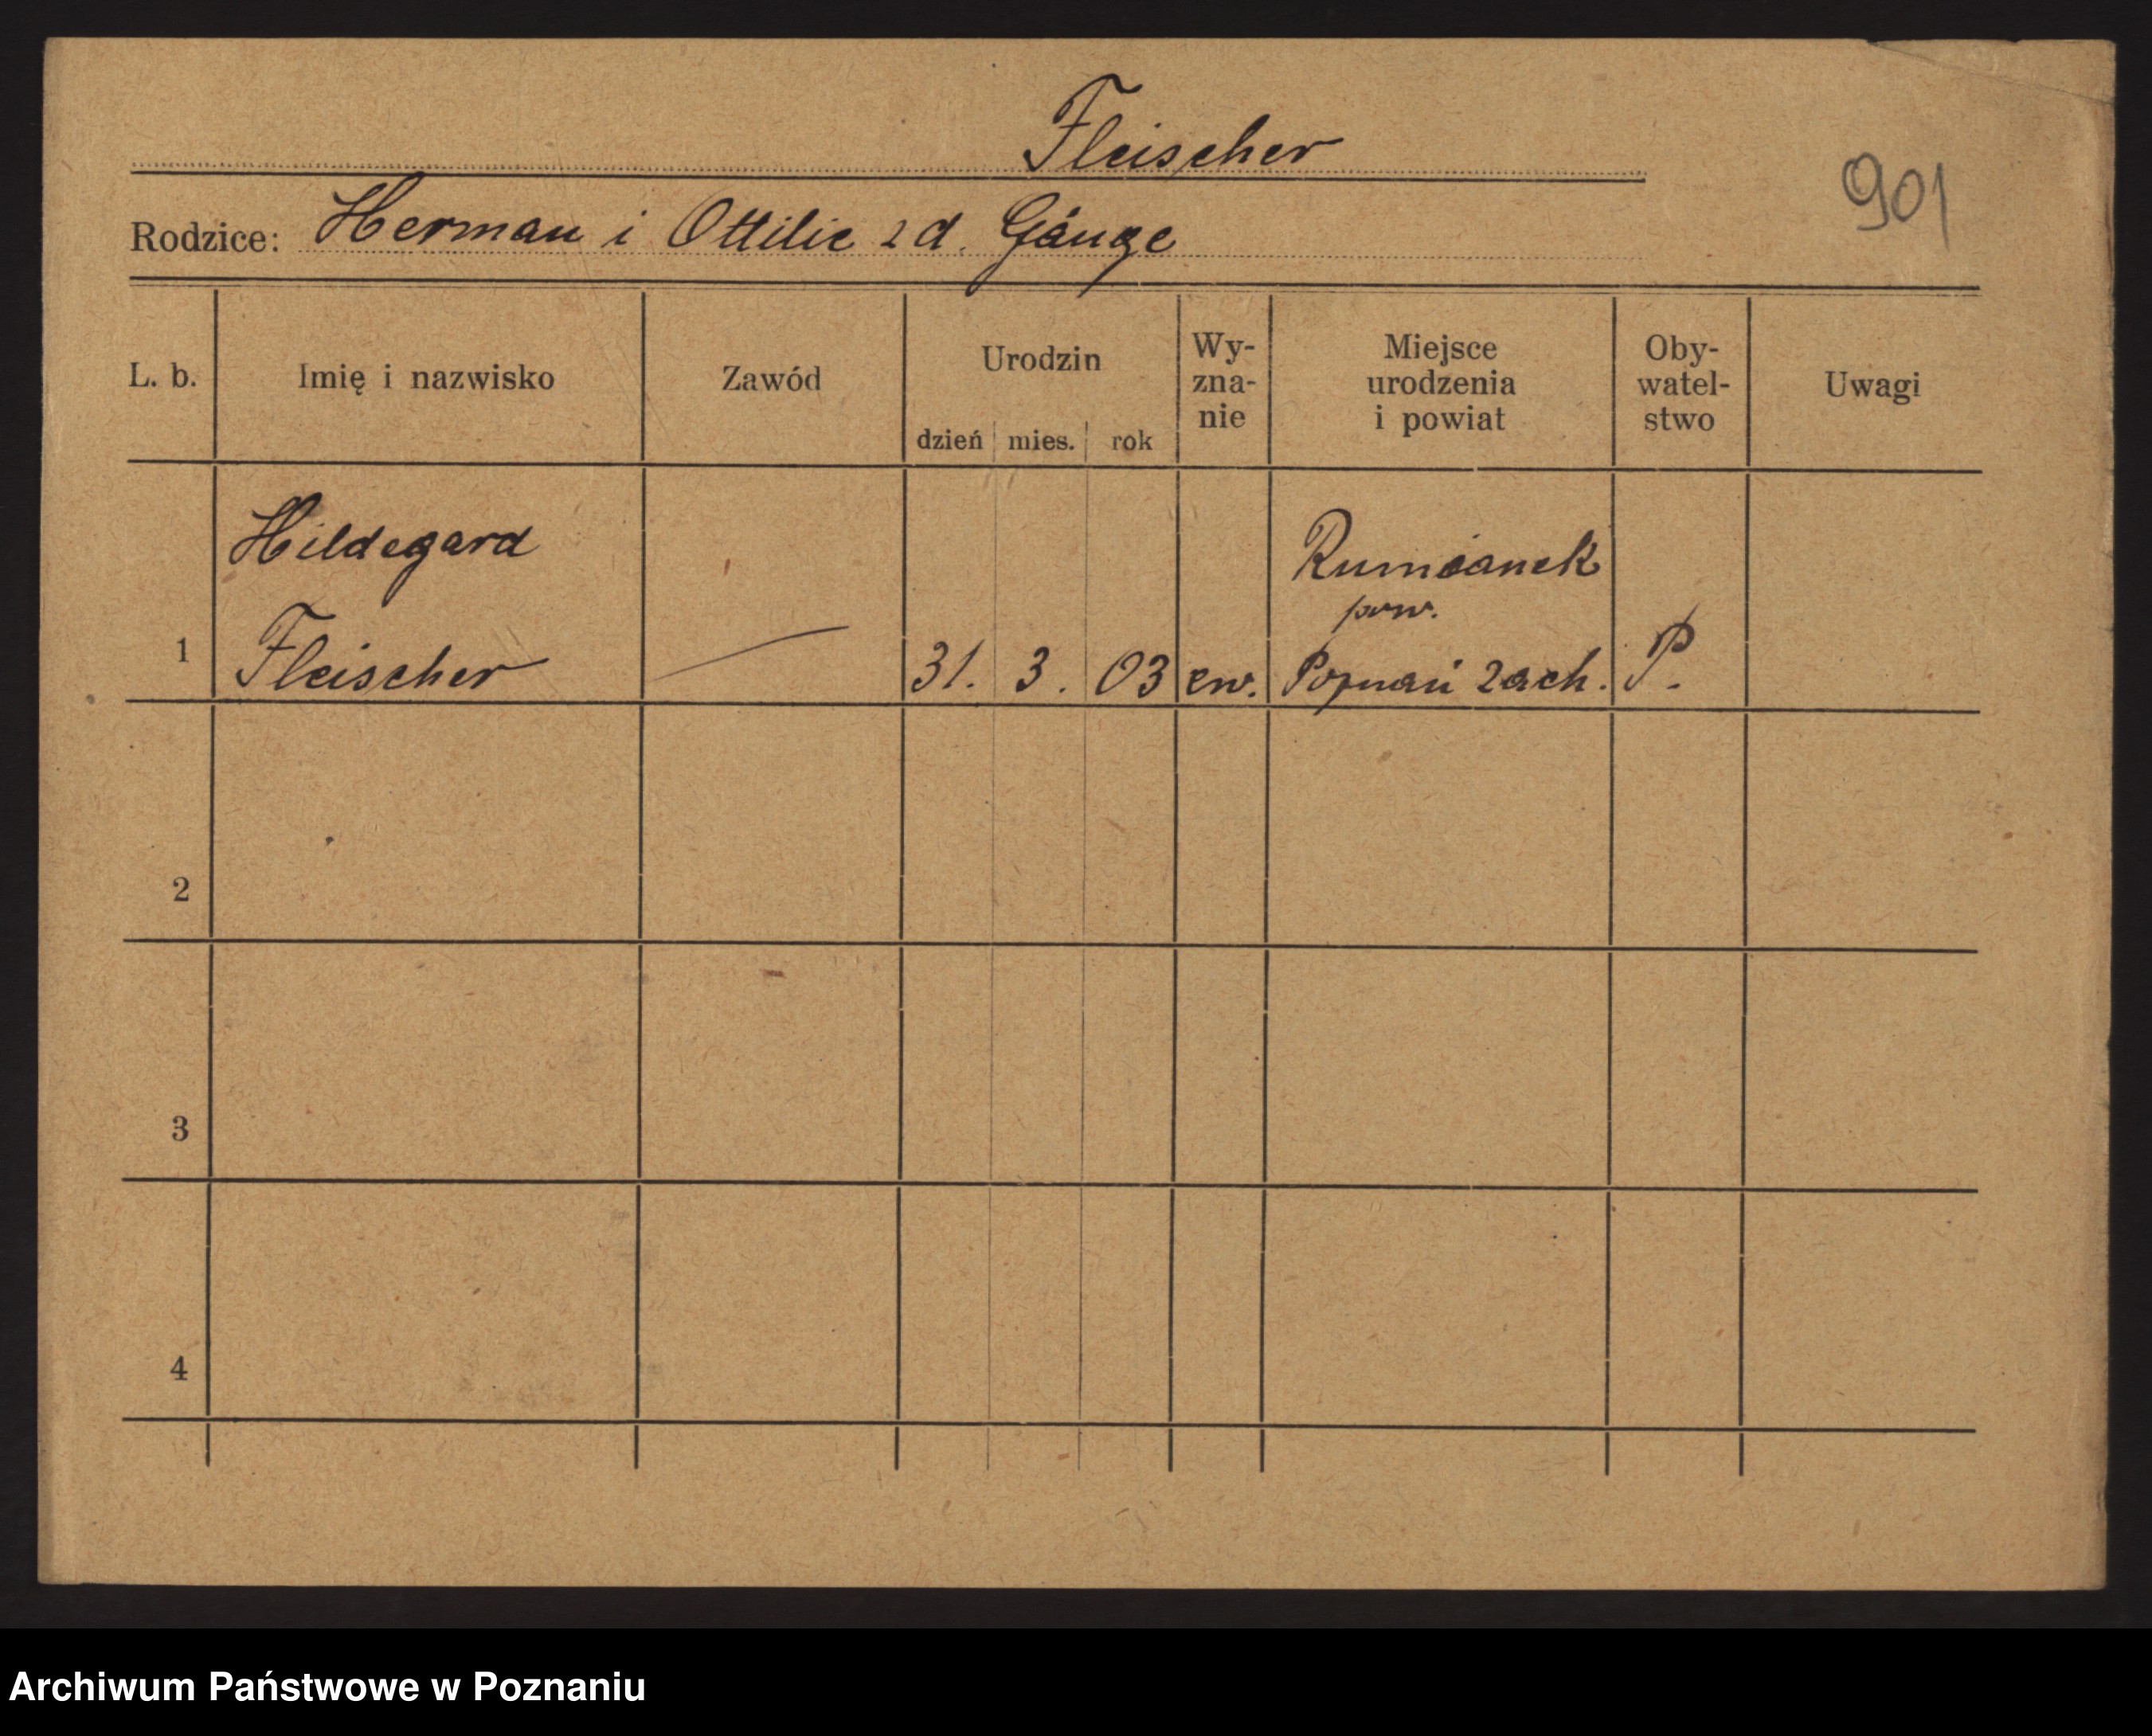 Fleischer
901
Rodzice: Herman i Ottilie z d. Gänge
L. b.
Imię i nazwisko
Zawód
Urodzin
dzień mies. rok
Wy-
zna-
nie
Miejsce
urodzenia
i powiat
Oby-
watel-
stwo
Uwagi
Hildegard
Rumianek
pow.
1 Fleischer — 31. 3. 03 ew. Poznań zach. P.
2
3
4
Archiwum Państwowe w Poznaniu